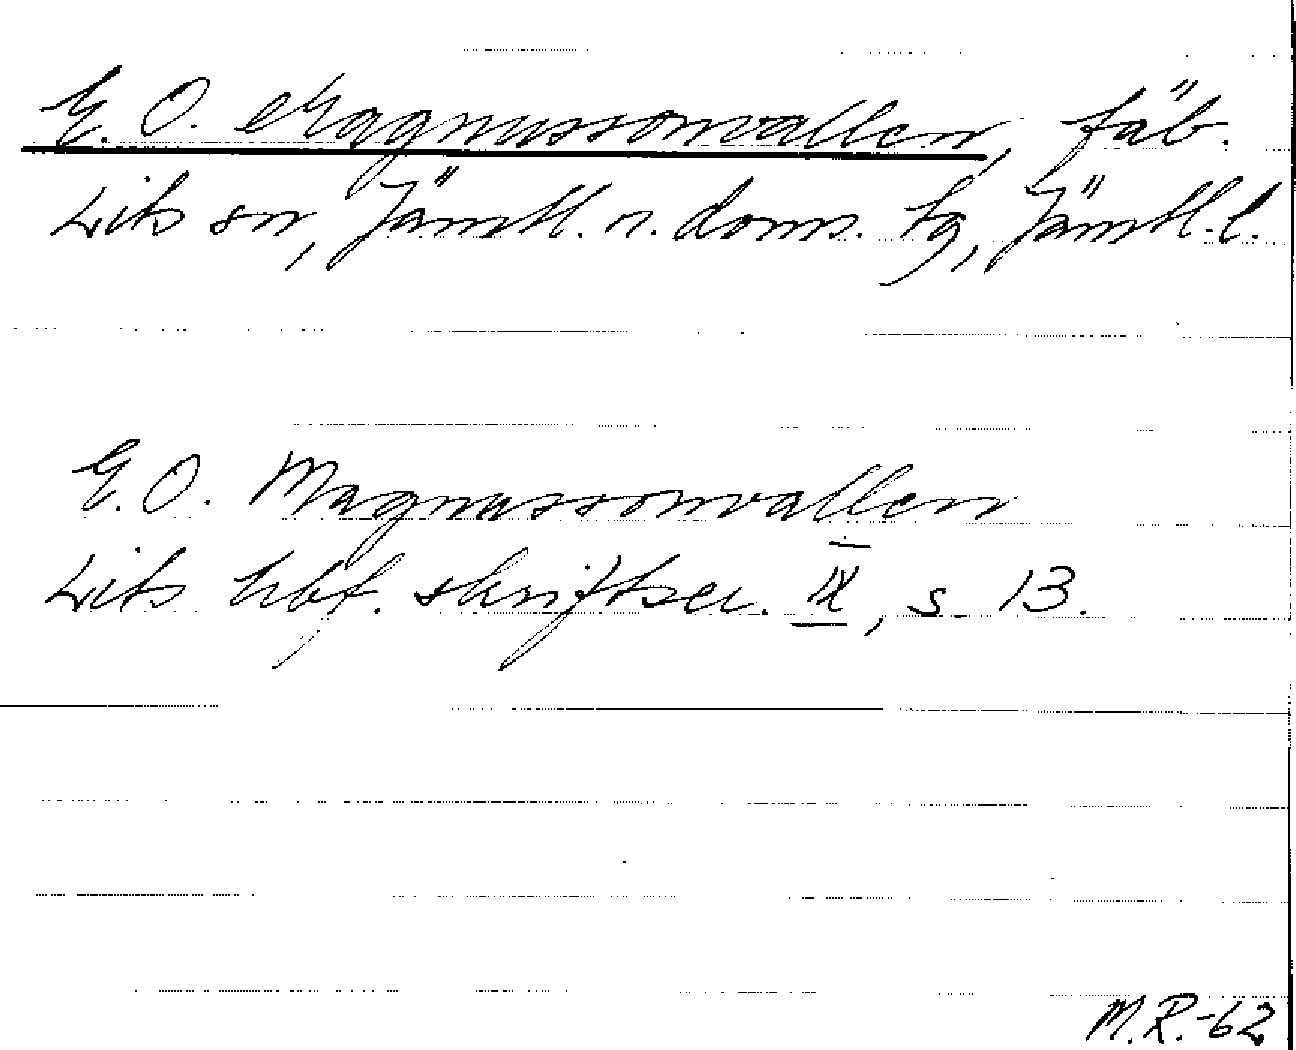 E. O. Magnussonvallen, fäb.
Lits sn, Jämtl. n. doms. tg, Jämtl. l.
E. O. Magnussonvallen
Lits hbf. skriftser. IX, s. 13.
M.R.-62